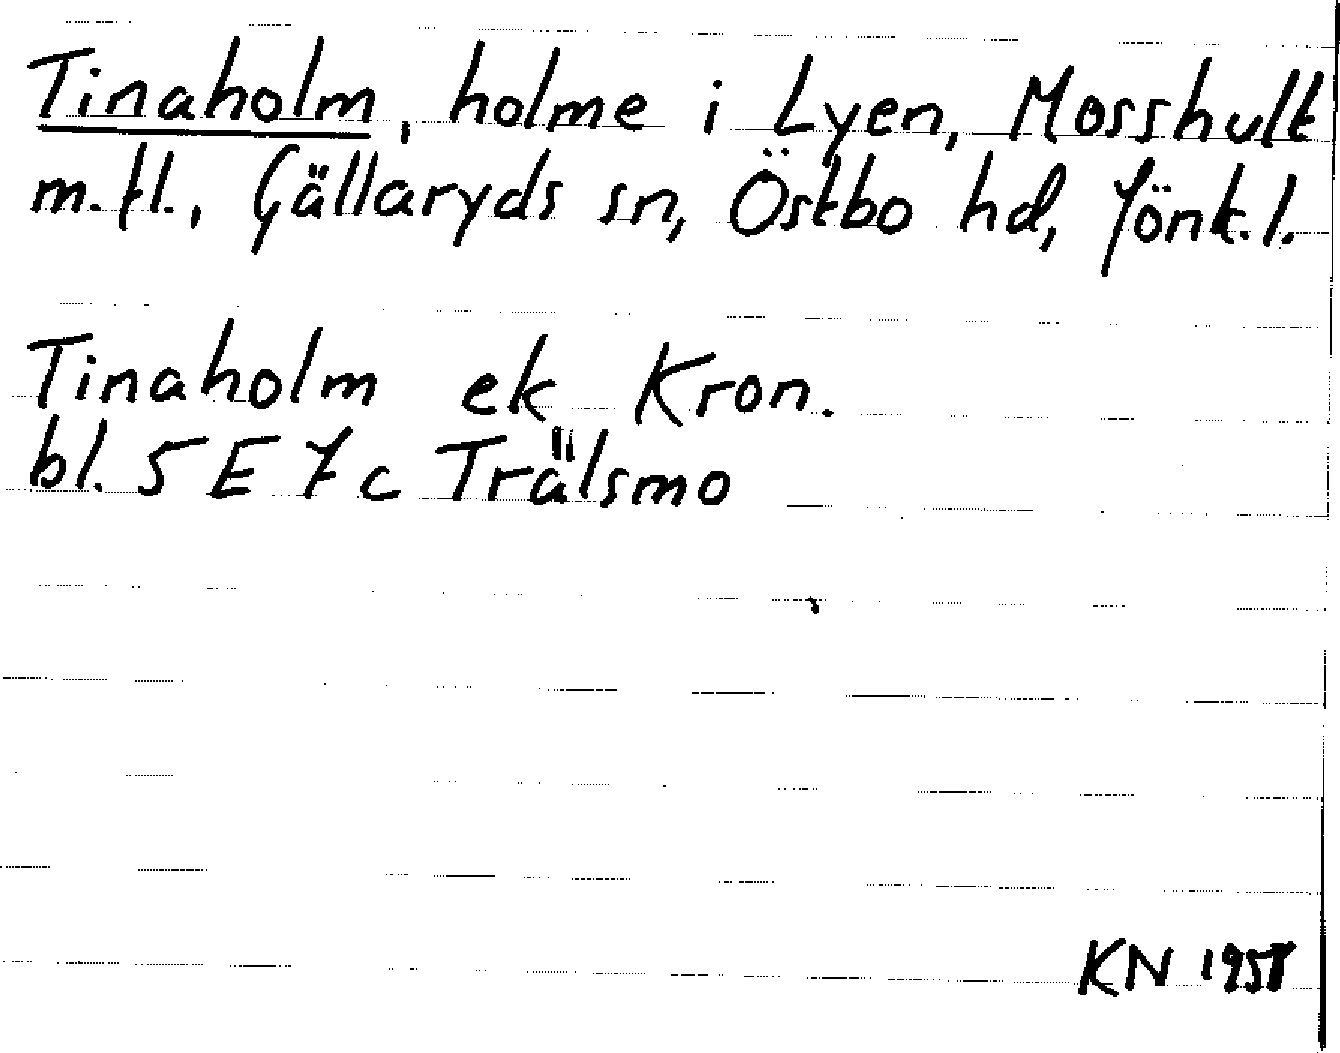 Tinaholm, holme i Lyen, Mosshult
m.fl., Gällaryds sn, Östbo hd, Jönk.l.
Tinaholm ek Kron.
bl. 5 E 7 c Trälsmo
KN